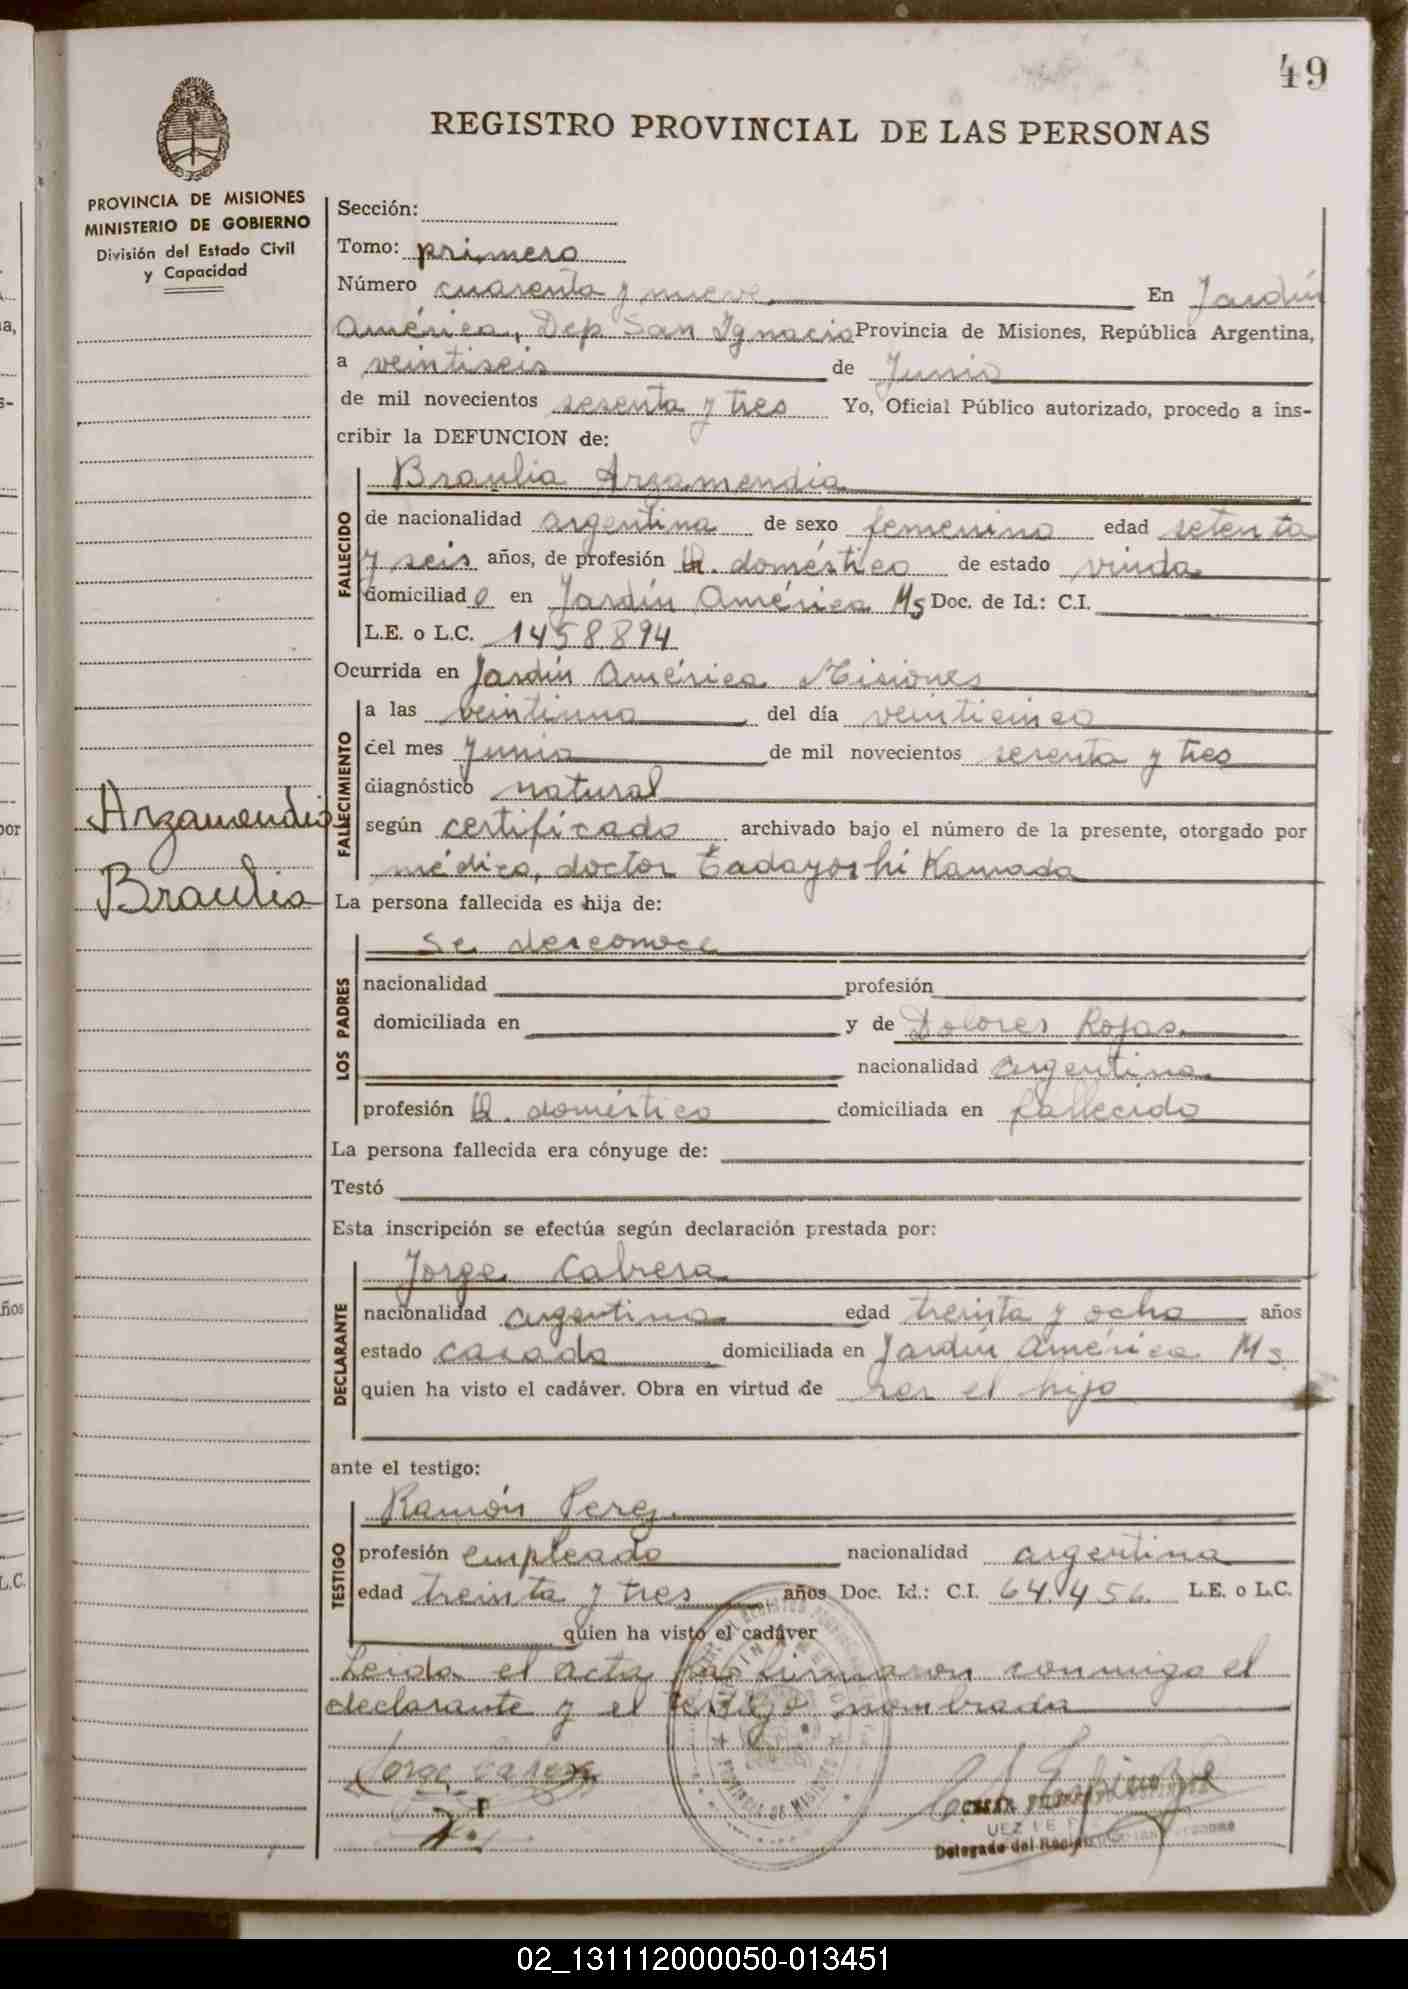 49
REGISTRO PROVINCIAL DE LAS PERSONAS
PROVINCIA DE MISIONES
MINISTERIO DE GOBIERNO
División del Estado Civil
y Capacidad
Sección:
Tomo: primero
Número cuarenta y nueve En Jardín
América, Dep San Ignacio Provincia de Misiones, República Argentina,
a veintiseis de Junio
de mil novecientos sesenta y tres Yo, Oficial Público autorizado, procedo a ins-
cribir la DEFUNCION de:
FALLECIDO
Braulia Arzamendia
de nacionalidad argentina de sexo femenino edad setenta
y seis años, de profesión Q. doméstico de estado viuda
domiciliad o en Jardín América Ms Doc. de Id.: C.I.
L.E. o L.C. 1458.894
Ocurrida en Jardín América Misiones
FALLECIMIENTO
a las veintiuno del día veinticinco
del mes Junio de mil novecientos sesenta y tres
diagnóstico natural
según certificado archivado bajo el número de la presente, otorgado por
médico, doctor Tadayoshi Kamada
Arzamendia
Braulia
La persona fallecida es hija de:
LOS PADRES
se desconoce
nacionalidad profesión
domiciliada en y de Dolores Rojas
nacionalidad argentina
profesión Q. doméstico domiciliada en fallecido
La persona fallecida era cónyuge de:
Testó
Esta inscripción se efectúa según declaración prestada por:
DECLARANTE
Jorge Cabrera
nacionalidad argentina edad treinta y ocho años
estado casado domiciliada en Jardín América Ms
quien ha visto el cadáver. Obra en virtud de ser el hijo
ante el testigo:
TESTIGO
Ramón Perez
profesión empleado nacionalidad argentina
edad treinta y tres años Doc. Id.: C.I. 64.456 L.E. o L.C.
quien ha visto el cadáver
Leida el acta la firmaron conmigo el
declarante y el testigo nombrado
Jorge
PROVINCIA DE MISIONES
Delegado del
02_131112000050-013451